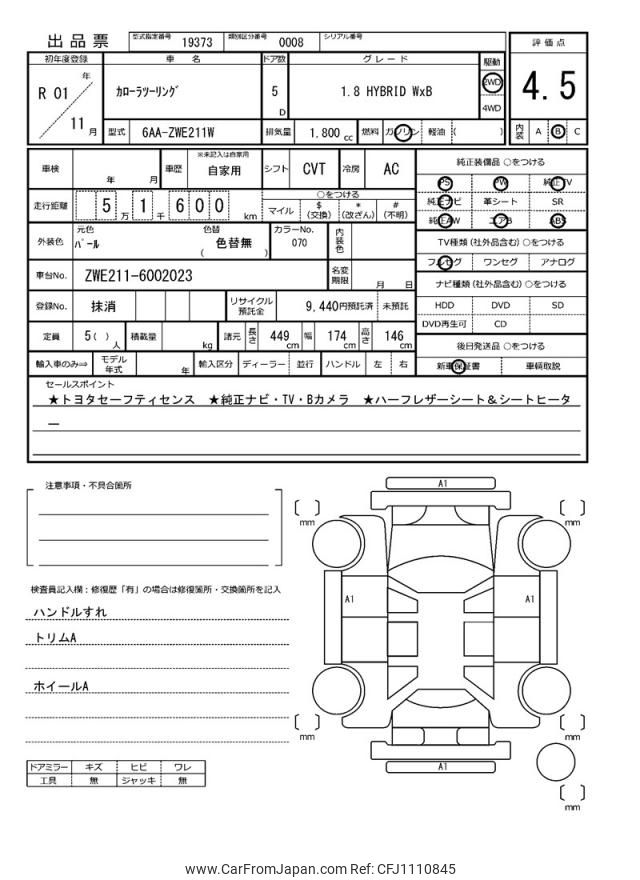 出品票 型式指定番号 19373 類別区分番号 0008 シリアル番号
評価点
4.5
内装 A B C
初年度登録 車名 ドア数 グレード 駆動
R 01 年 11 月 カローラツーリング 5 D 1.8 HYBRID WxB 2WD 4WD
型式 6AA-ZWE211W 排気量 1.800 cc 燃料 ガソリン 軽油 ( )
車検 年 月 車歴 ※未記入は自家用 自家用 シフト CVT 冷房 AC
走行距離 5 万 1 千 6 0 0 km
○をつける
マイル $ (交換) * (改ざん) # (不明)
外装色 元色 パール 色替 色替無 ( ) カラーNo. 070 内装色
車台No. ZWE211-6002023 名変期限 月 日
登録No. 抹消 リサイクル預託金 9,440円預託済 未預託
定員 5( ) 人 積載量 kg 諸元 長さ 449 cm 幅 174 cm 高さ 146 cm
輸入車のみ⇒ モデル年式 年 輸入区分 ディーラー 並行 ハンドル 左 右
純正装備品 ○をつける
PS PW 純正TV
純正ナビ 革シート SR
純正AW エアB ABS
TV種類 (社外品含む) ○をつける
フルセグ ワンセグ アナログ
ナビ種類 (社外品含む) ○をつける
HDD DVD SD
DVD再生可 CD
後日発送品 ○をつける
新車保証書 車輌取説
セールスポイント
★トヨタセーフティセンス ★純正ナビ・TV・Bカメラ ★ハーフレザーシート&シートヒータ
ー
注意事項・不具合箇所
検査員記入欄：修復歴「有」の場合は修復箇所・交換箇所を記入
ハンドルすれ
トリムA
ホイールA
ドアミラー キズ ヒビ ワレ
工具 無 ジャッキ 無
A1
[ ] mm [ ] mm
A1 A1
[ ] mm [ ] mm
A1
[ ] mm
www.CarFromJapan.com Ref: CFJ1110845